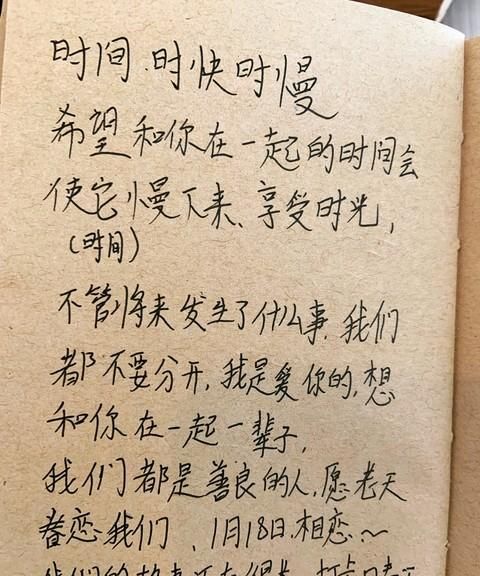 时间、时快时慢
希望和你在一起的时间会
使它慢下来、享受时光，
（时间）
不管将来发生了什么事、我们
都不要分开，我是爱你的，想
和你在一起一辈子，
我们都是善良的人，愿老天
眷恋我们、1月18日、相恋～
我们的故事还在很长